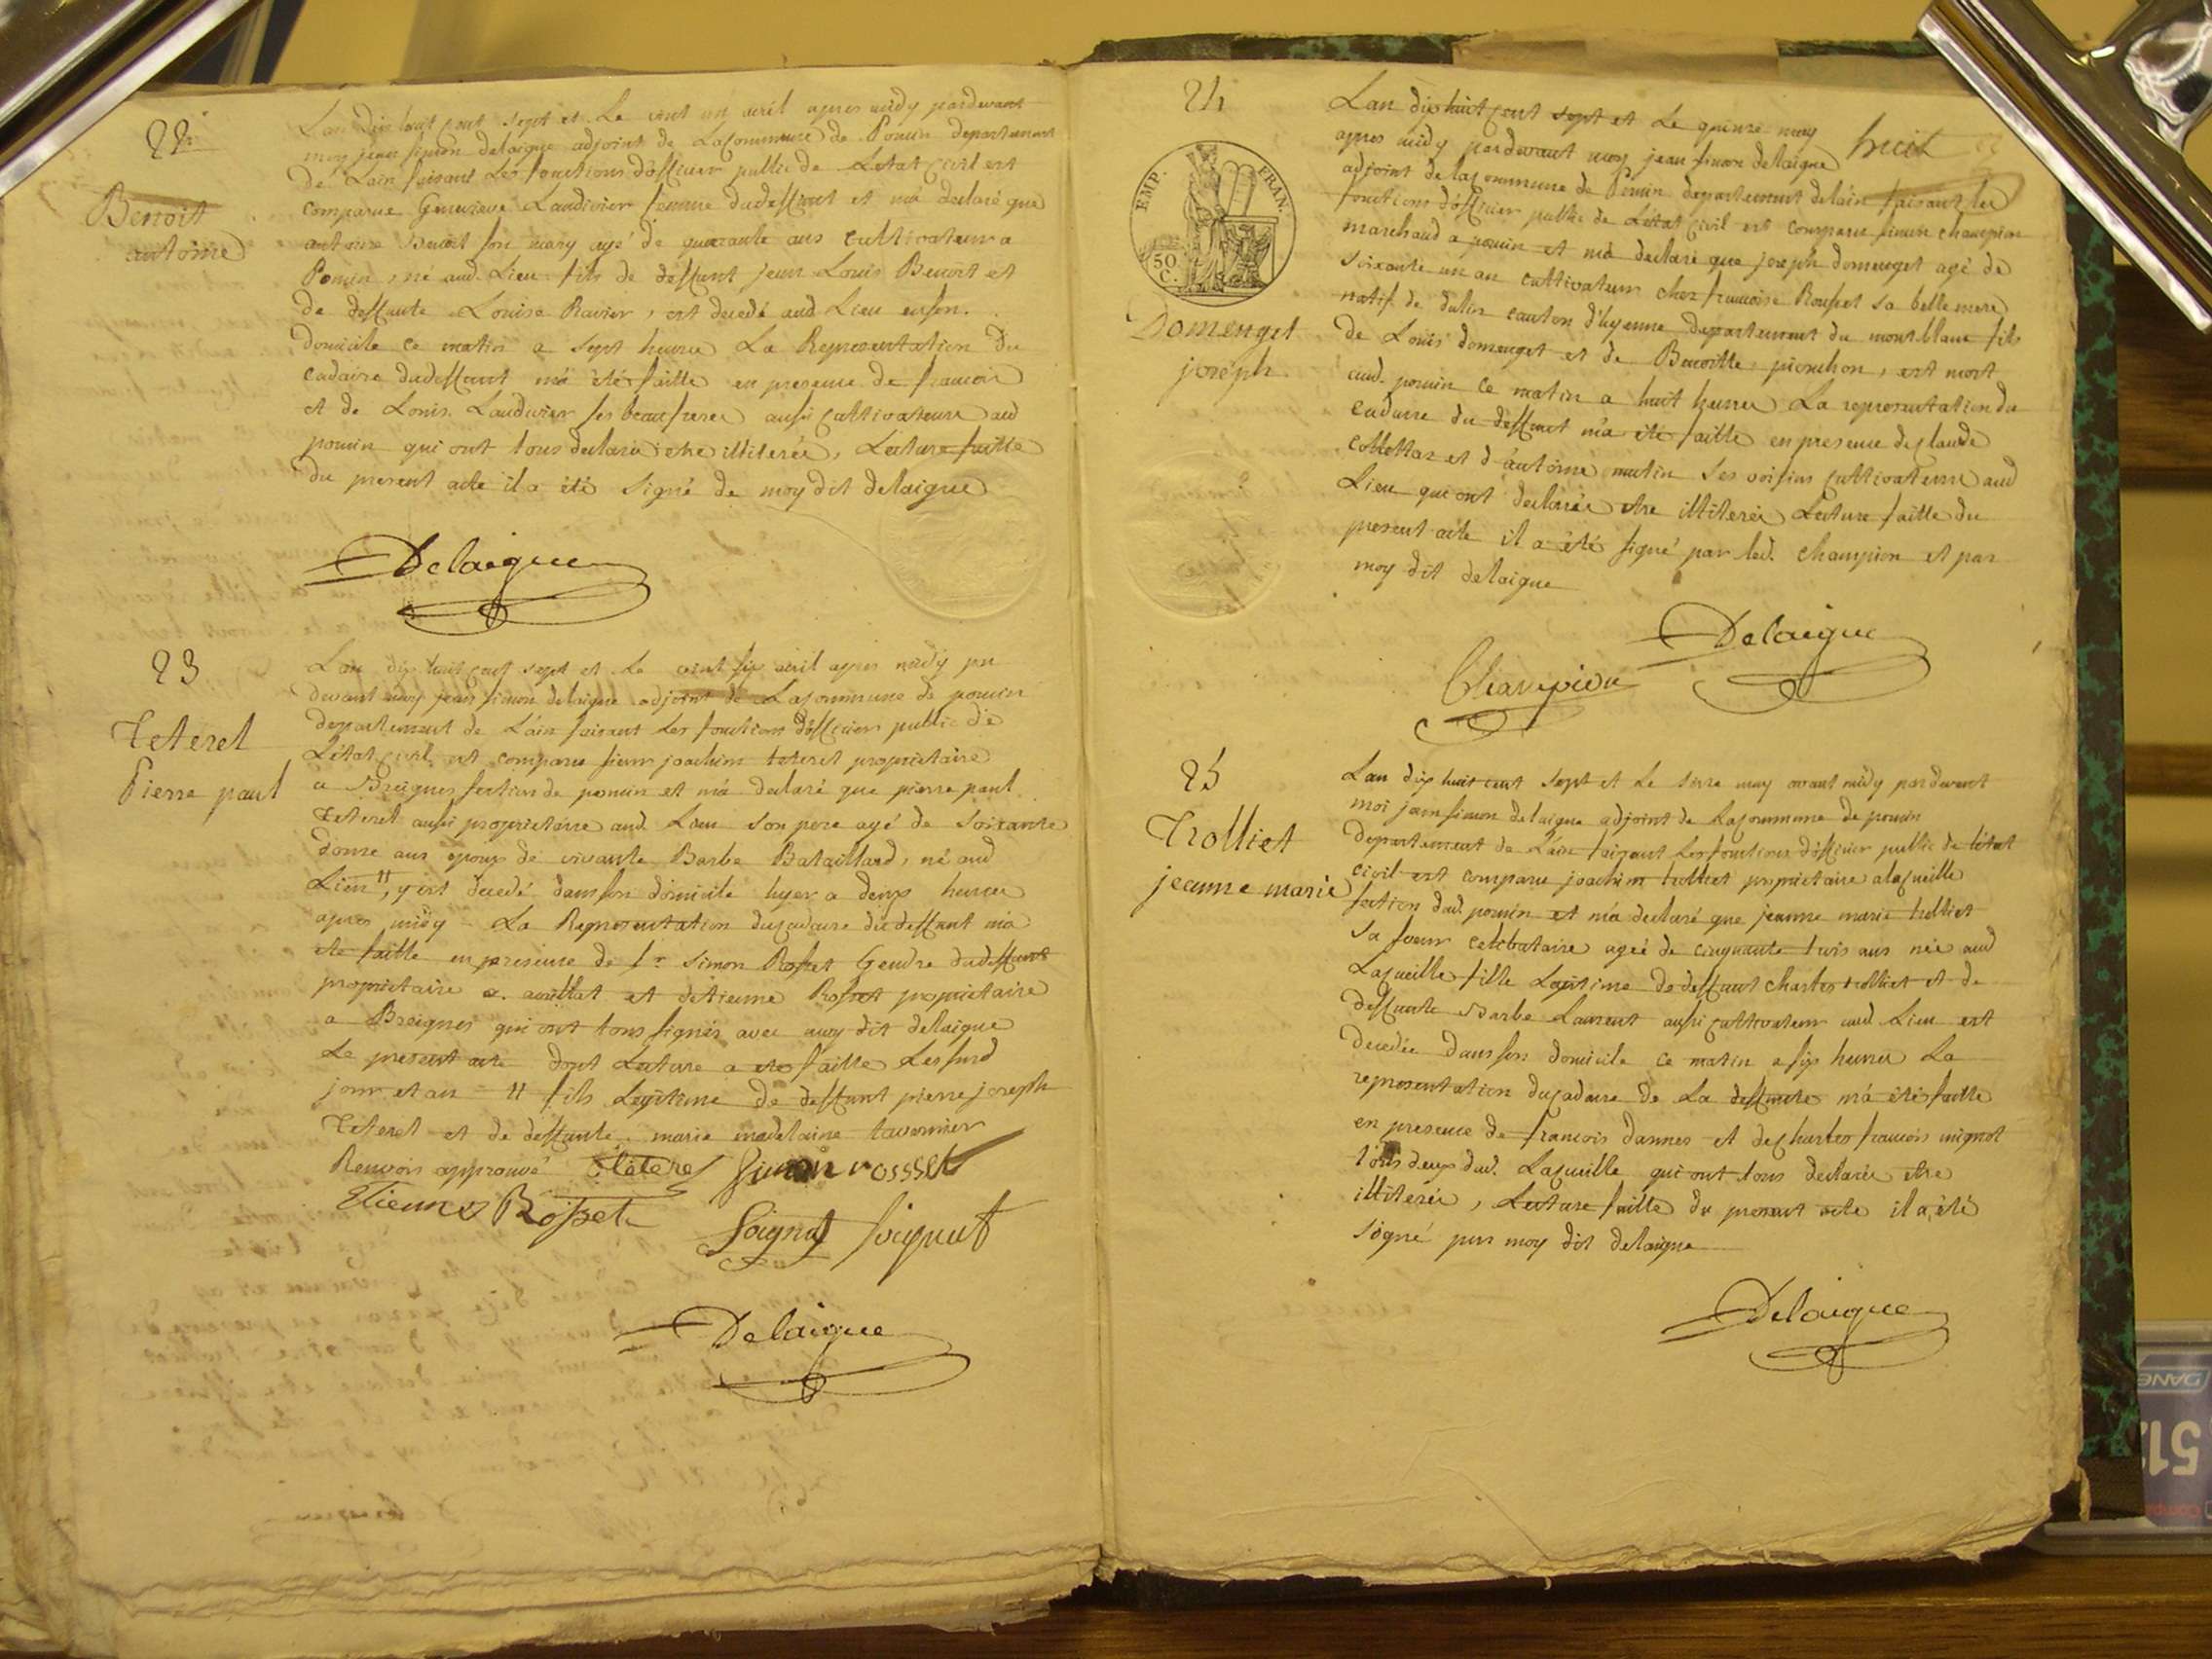 22
Benoit
antoine
Lan dix huit cent sept et Le vint un avril apres midy pardevant
moy jean simon delaigue adjoint de Lacommune de Poncin departement
de Lain faisant Les fonctions dofficier public de Letat civil est
comparue Genevieve Laudivier femme dudeffunt et m'a declaré que
antoine Benoit son mary agé de quarante ans cultivateur a
Poncin, né aud. Lieu fils de deffunt jean Louis Benoit et
de deffunte Louise Ravier, est decedé aud Lieu enson
domicile ce matin a sept heures La Representation du
cadavre dudeffunt m'a été faitte en presence de francois
et de Louis Laudivier ses beaufreres aussi cultivateurs aud
poncin qui ont tous declaré etre illiterés, Lecture faitte
du present acte il a été signé de moy dit delaigue
Delaigue
23
Teteret
Pierre paul
Lan dix huit cent sept et Le vint six avril apres midy par
devant moy jean simon delaigue adjoint de Lacommune de poncin
departement de L'ain faisant Les fonctions dofficier public de
L'état civil est comparu sieur joachim teteret proprietaire
a Breignes section de poncin et m'a declaré que pierre paul
teteret aussi proprietaire aud. Lieu son pere agé de soixante
douze ans epoux de vivante Barbe Bataillard, né aud
Lieu #, y est decedé dans son domicile hyer a deux heures
apres midy - La Representation ducadavre dudeffunt m'a
eté faitte en presence de Sr Simon Rosset Gendre dudeffunt
proprietaire a avillat et detienne Rosset proprietaire
a Breignes qui ont tous signés avec moy dit delaigue
Le present acte dont Lecture a eté faitte Lesfusd
jour et an # fils Legitime de deffunt pierre joseph
Teteret et de deffunte marie madelaine tavernier
Renvois approuvé Teteret Simon rosset
Etienne Rosset
Delaigue
24
huit
EMP. FRAN.
50 C.
Domenget
joseph
Lan dix huit cent sept et Le quinze may
apres midy pardevant moy jean simon delaigue
adjoint delacommune de Poncin departement delain faisant les
fonctions dofficier public de Letat civil est comparu simon champion
marchand a poncin et m'a declaré que joseph domenget agé de
soixante un an cultivateur chez francoise Rousset sa belle mere
natif de dulin canton d'hyenne departement du montblanc fils
de Louis domenget et de Benoitte pionchon, est mort
aud. poncin ce matin a huit heures La representation du
cadavre du deffunt m'a été faitte en presence de claude
collettaz et d'antoine mutin ses voisins cultivateurs aud
Lieu qui ont declarés etre illiterés Lecture faitte du
present acte il a été signé par led. champion et par
moy dit delaigue
Delaigue
Champion
25
Trolliet
jeanne marie
Lan dix huit cent sept et Le seize may avant midy pardevant
moi jean simon delaigue adjoint de Lacommune de poncin
departement de L'ain faisant Les fonctions dofficier public de létat
civil est comparu joachim trolliet proprietaire alacueille
section dud. poncin et m'a declaré que jeanne marie trolliet
sa soeur celibataire agée de cinquante trois ans née aud
Lacueille fille Legitime de deffunt charles trolliet et de
deffunte Barbe Laurent aussi cultivateur aud. Lieu est
decedée dans son domicile ce matin a six heures La
representation ducadavre de La deffunte m'a été faitte
en presence de francois dannes et decharles francois mignot
tous deux dud. Lacueille qui ont tous declarés etre
illiterés, Lecture faitte du present acte il a été
signé par moy dit delaigue
Delaigue
DANE
512